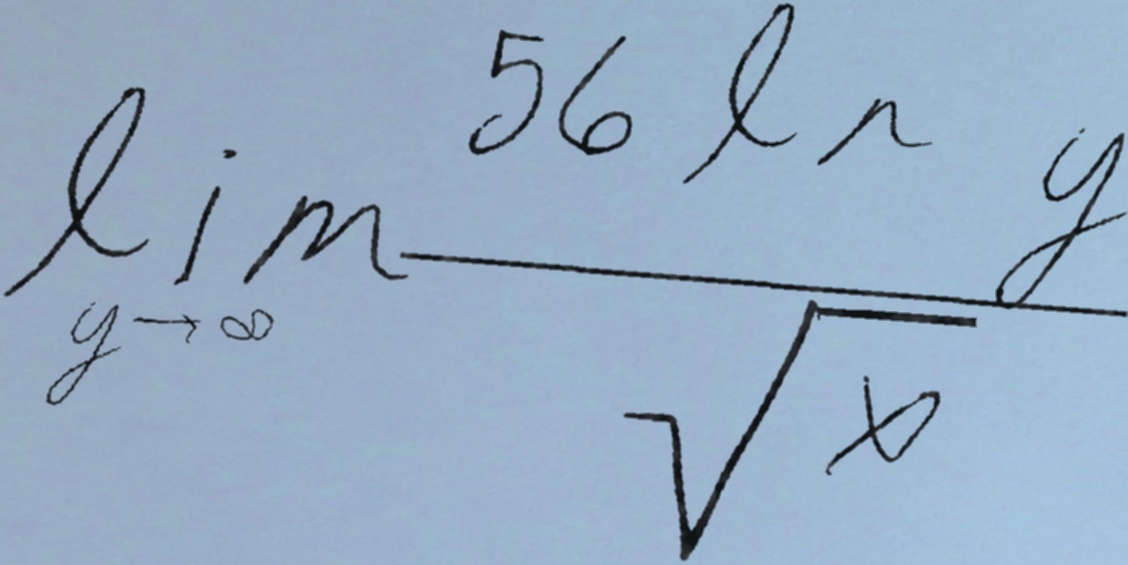 \lim_{y \to \infty} \frac{56 \ln y}{\sqrt{x}}